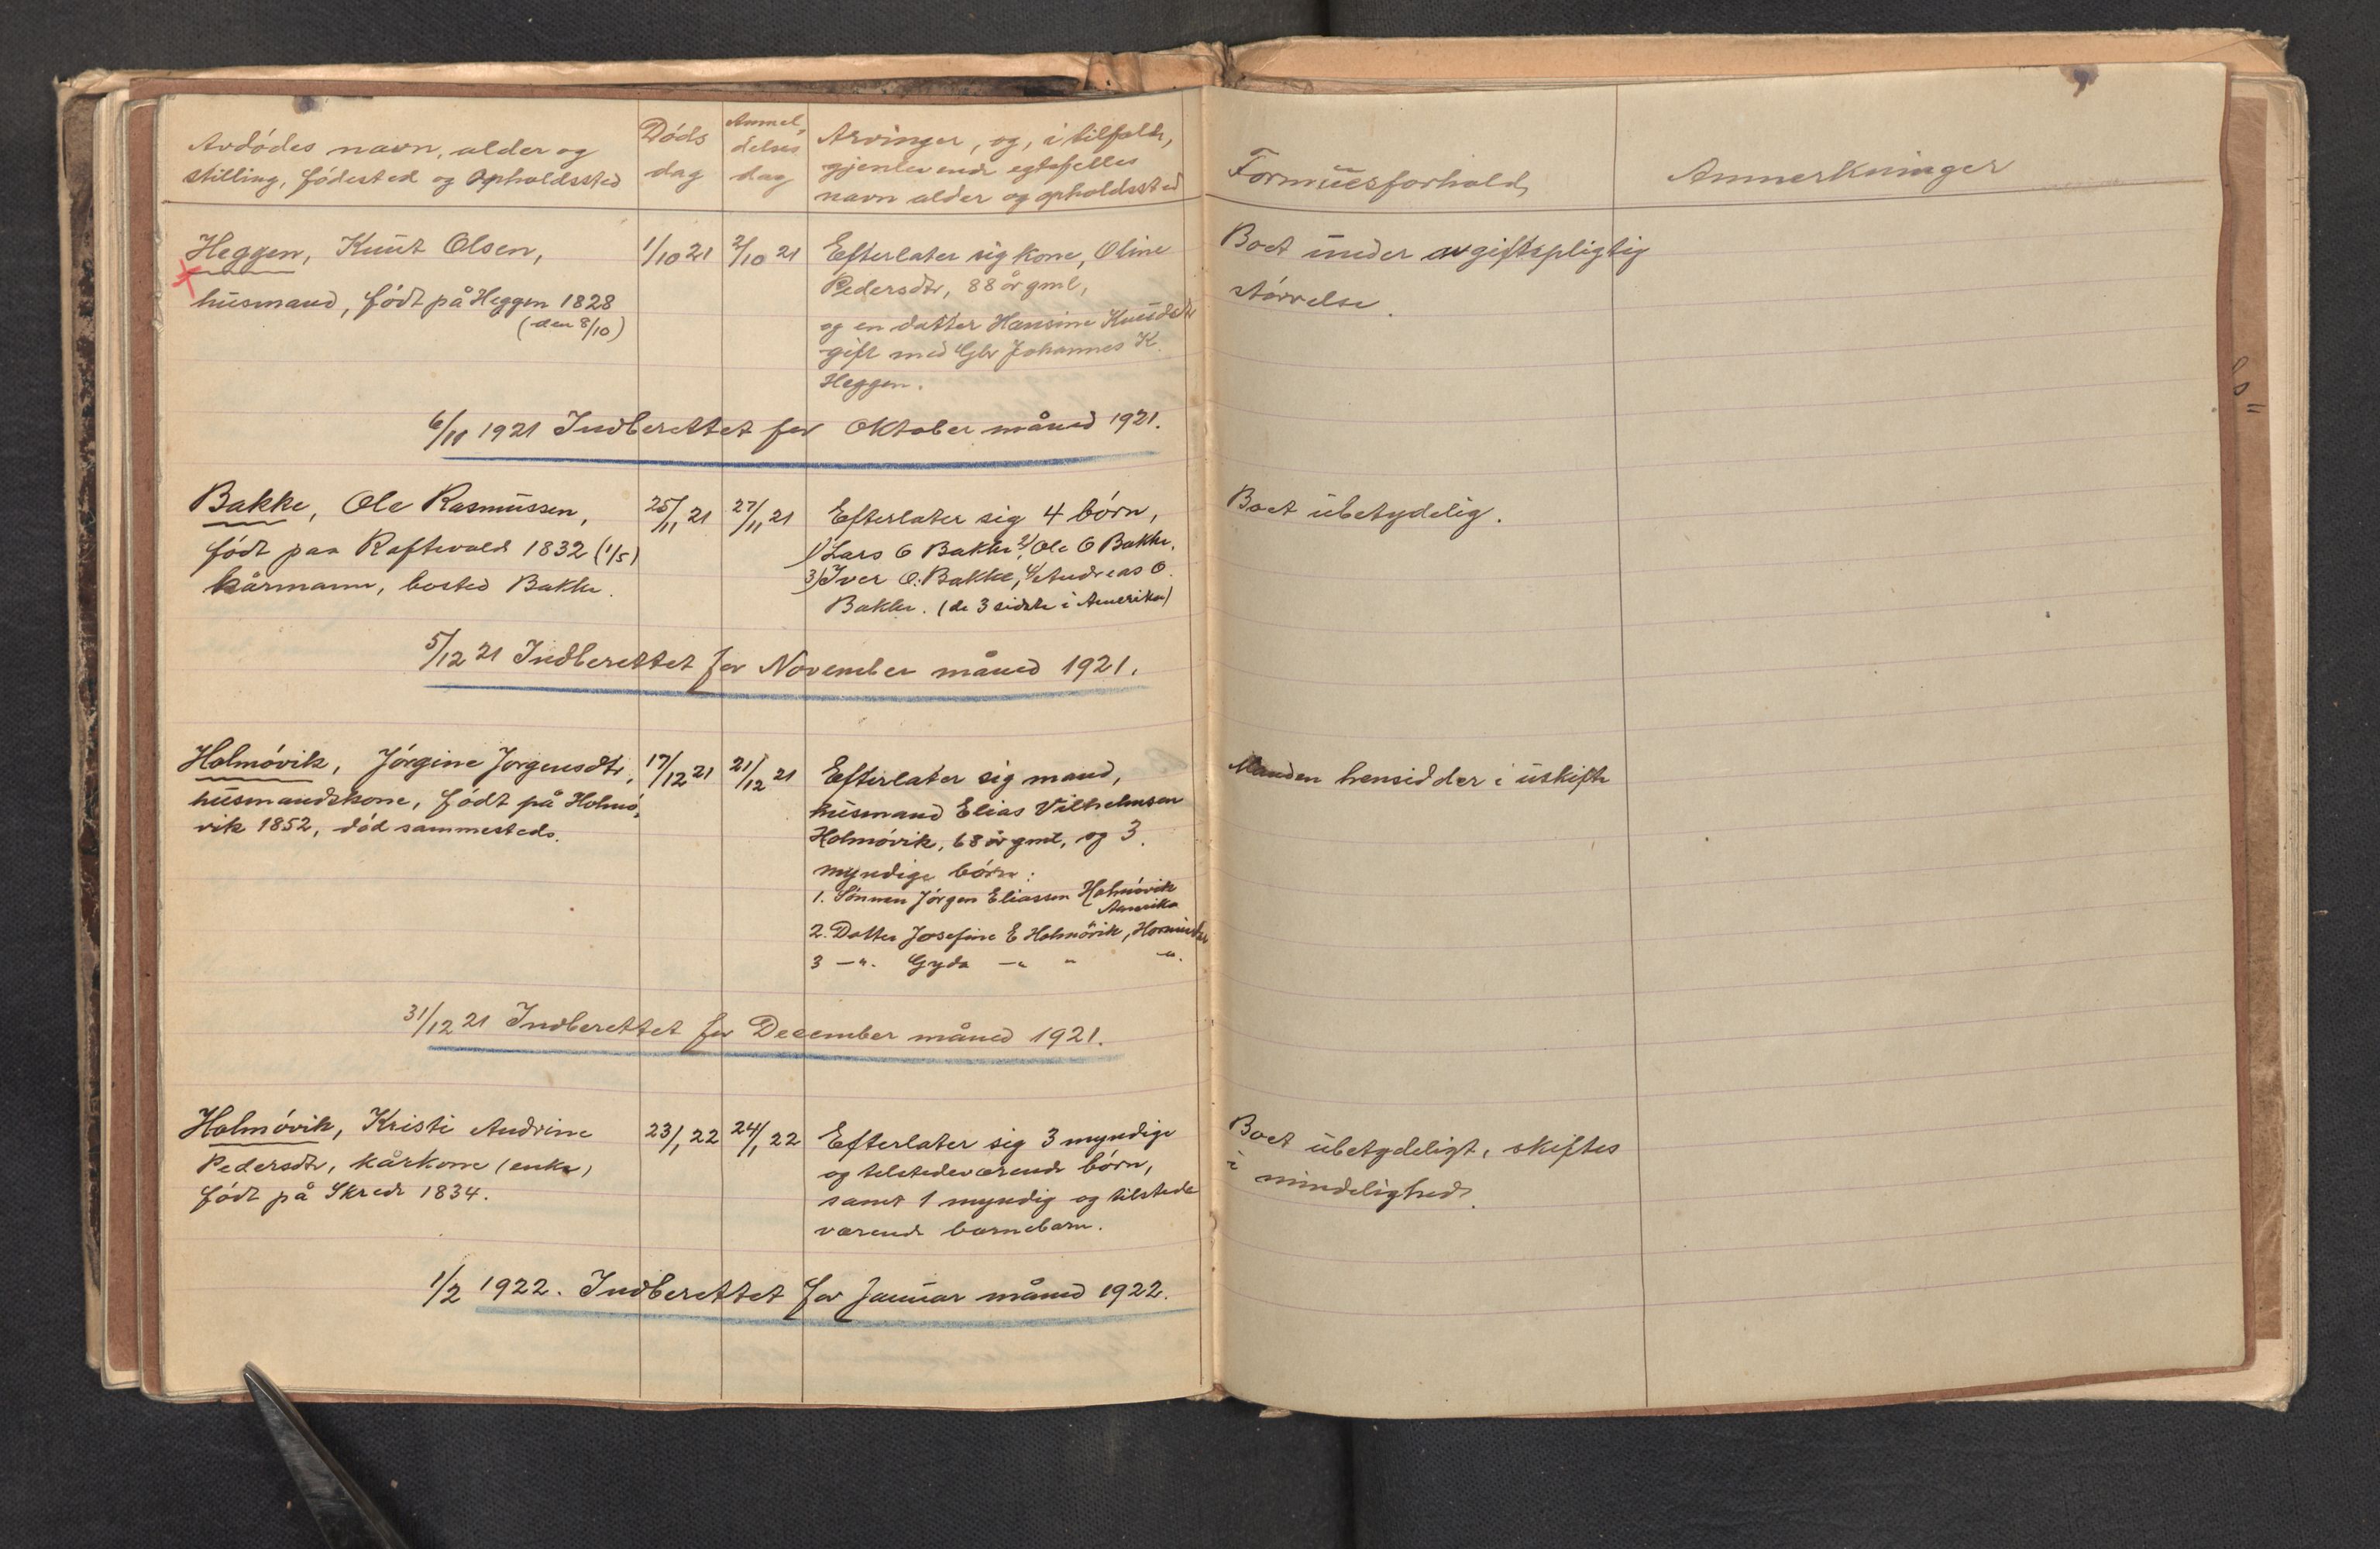 Avdødes navn, alder og
stilling, fødested og Opholdssted
Døds
dag
Anmel,
delses
dag
Arvinger, og, i tilfelde,
gjenlevende egtefelles
navn alder og opholdssted
Formuesforhold,
Anmerkninger
Heggen, Knut Olsen,
husmand, født på Heggen 1828
(den 8/10)
1/10 21
2/10 21
Efterlater sig kone, Oline
Pedersdtr, 88 år gml,
og en datter Hansine Knudsdtr
gift med Gbr Johannes K.
Heggen.
Boet under avgiftspligtig
størrelse.
6/11 1921 Indberettet for Oktober måned 1921.
Bakke, Ole Rasmussen,
født paa Raftevold 1832 (1/5)
kårmann, bosted Bakke.
25/11 21
27/11 21
Efterlater sig 4 børn,
1) Lars O Bakke 2) Ole O Bakke,
3) Iver O. Bakke, 4) Andreas O.
Bakke. (de 3 sidste i Amerika)
Boet ubetydelig.
5/12 21 Indberettet for November måned 1921.
Holmøvik, Jørgine Jørgensdtr,
husmandskone, født på Holmø,
vik 1852, død sammesteds.
17/12 21
21/12 21
Efterlater sig mand,
husmand Elias Vilhelmsen
Holmøvik, 68 år gml, og 3
myndige børn:
1. Sønnen Jørgen Eliassen Holmøvik
Amerika
2. Datter Josefine E Holmøvik, Hornindal
3 —". Gyda —" " —".
Manden hensidder i uskifte
31/12 21 Indberettet for December måned 1921.
Holmøvik, Kristi Andrine
Pedersdtr, kårkone (enke)
født på Skrede 1834.
23/1 22
24/1 22
Efterlater sig 3 myndige
og telstedeværende børn,
samt 1 myndig og tilstede
værende barnebarn.
Boet ubetydeligt, skiftes
i mindelighed.
1/2 1922. Indberettet for Januar måned 1922.